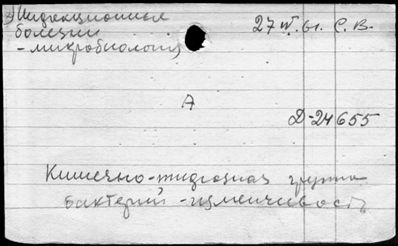 Инфекционные 27 IV. 61. С. В.
болезни
- микробиология
А
Д-24655
Кишечно-тифозная группа
бактерий - изменчивость